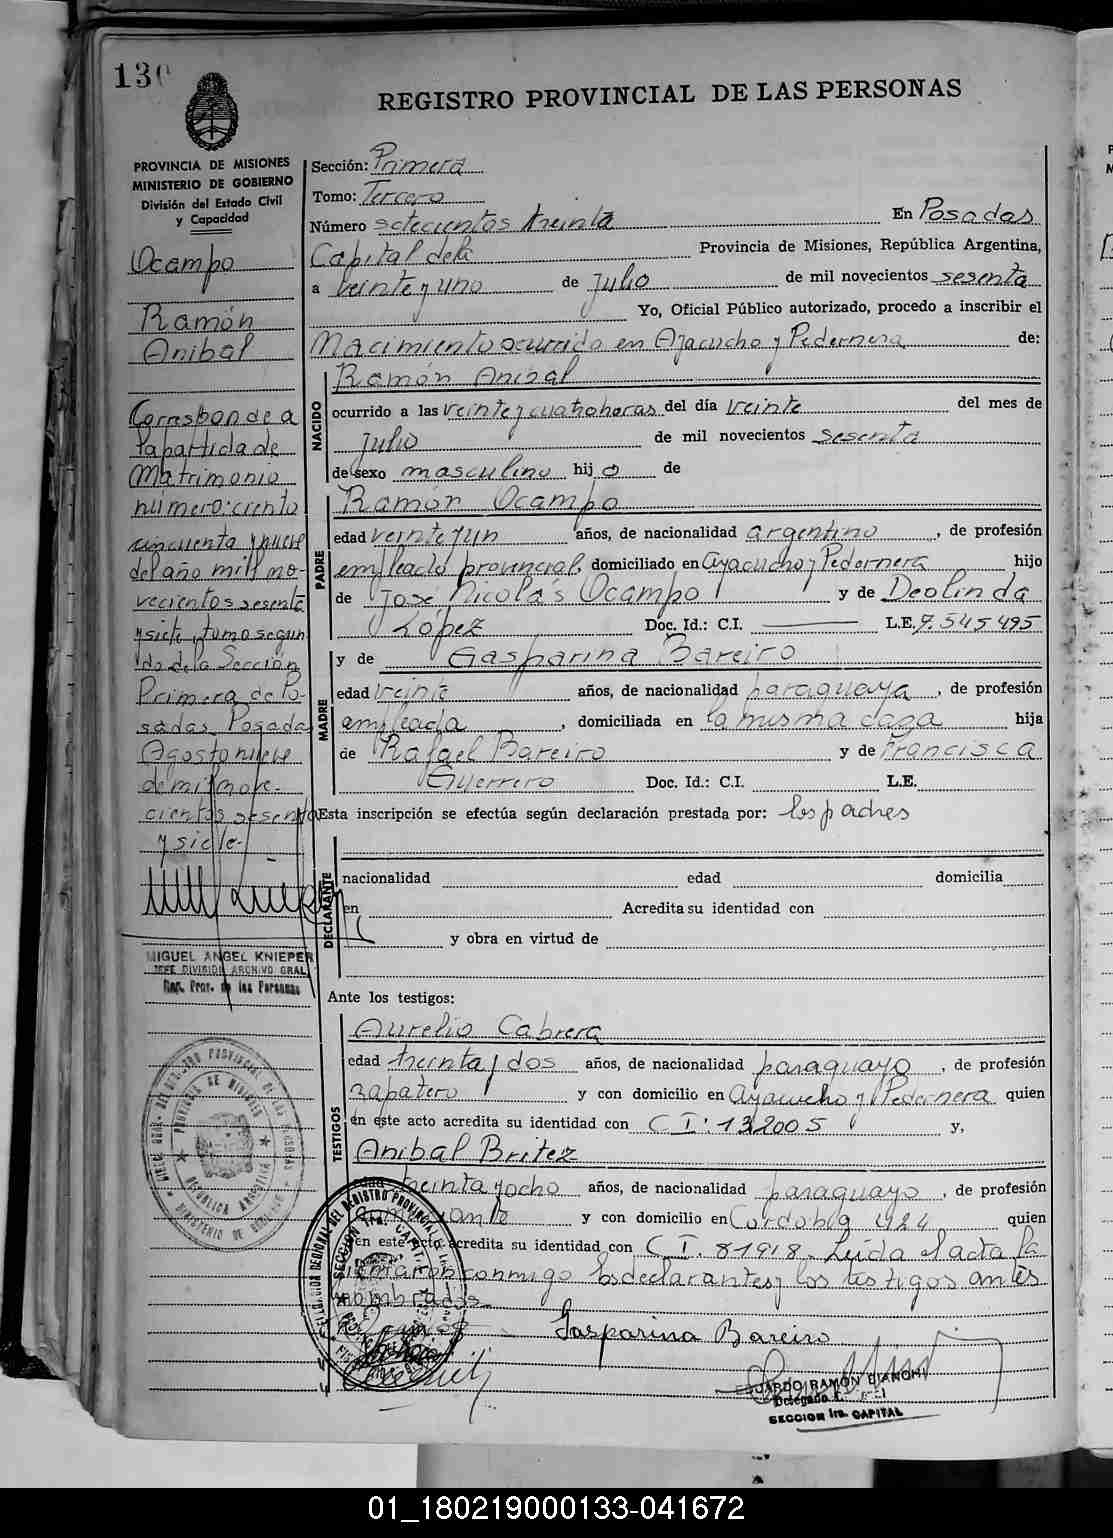 130
REGISTRO PROVINCIAL DE LAS PERSONAS
PROVINCIA DE MISIONES
MINISTERIO DE GOBIERNO
División del Estado Civil
y Capacidad
Ocampo
Ramón
Anibal
Corresponde a
la partida de
Matrimonio
número: ciento
cincuenta y nueve
del año mill no-
vecientos sesenta
y siete, tomo segun
do de la Sección
Primera de Po-
sadas. Posadas
Agosto nueve
de mil nove-
cientos sesenta
y siete-
MIGUEL ANGEL KNIEPER
JEFE DIVISION ARCHIVO GRAL.
Reg. Prov. de las Personas
Sección: Primera
Tomo: Tercero
Número setecientos treinta En Posadas
Capital de la Provincia de Misiones, República Argentina,
a veinte y uno de Julio de mil novecientos sesenta
Yo, Oficial Público autorizado, procedo a inscribir el
Nacimiento ocurrido en Ayacucho y Pedernera de:
NACIDO
Ramón Anibal
ocurrido a las veinte y cuatro horas del día veinte del mes de
Julio de mil novecientos sesenta
de sexo masculino hijo de
PADRE
Ramón Ocampo
edad veinte y un años, de nacionalidad argentino, de profesión
empleado provincial, domiciliado en Ayacucho y Pedernera hijo
de José Nicolás Ocampo y de Deolinda
López Doc. Id.: C.I. L.E. 7.545495
MADRE
y de Gasparina Bareiro
edad veinte años, de nacionalidad paraguaya, de profesión
empleada, domiciliada en la misma casa hija
de Rafael Bareiro y de Francisca
Guerrero Doc. Id.: C.I. L.E.
Esta inscripción se efectúa según declaración prestada por: los padres
DECLARANTE
nacionalidad edad domicilia
en Acredita su identidad con
y obra en virtud de
Ante los testigos:
TESTIGOS
Aurelio Cabrera
edad treinta y dos años, de nacionalidad paraguayo, de profesión
zapatero y con domicilio en Ayacucho y Pedernera quien
en este acto acredita su identidad con C I: 132005 y,
Anibal Britez
edad treinta y ocho años, de nacionalidad paraguayo, de profesión
y con domicilio en Cordoba 424 quien
en este acto acredita su identidad con C I. 81918. Leida el acta la
firmaron conmigo los declarantes y los testigos antes
nombrados
Gasparina Bareiro
EDUARDO RAMÓN BIANCHI
Delegado
SECCION 1ra. CAPITAL
01_180219000133-041672